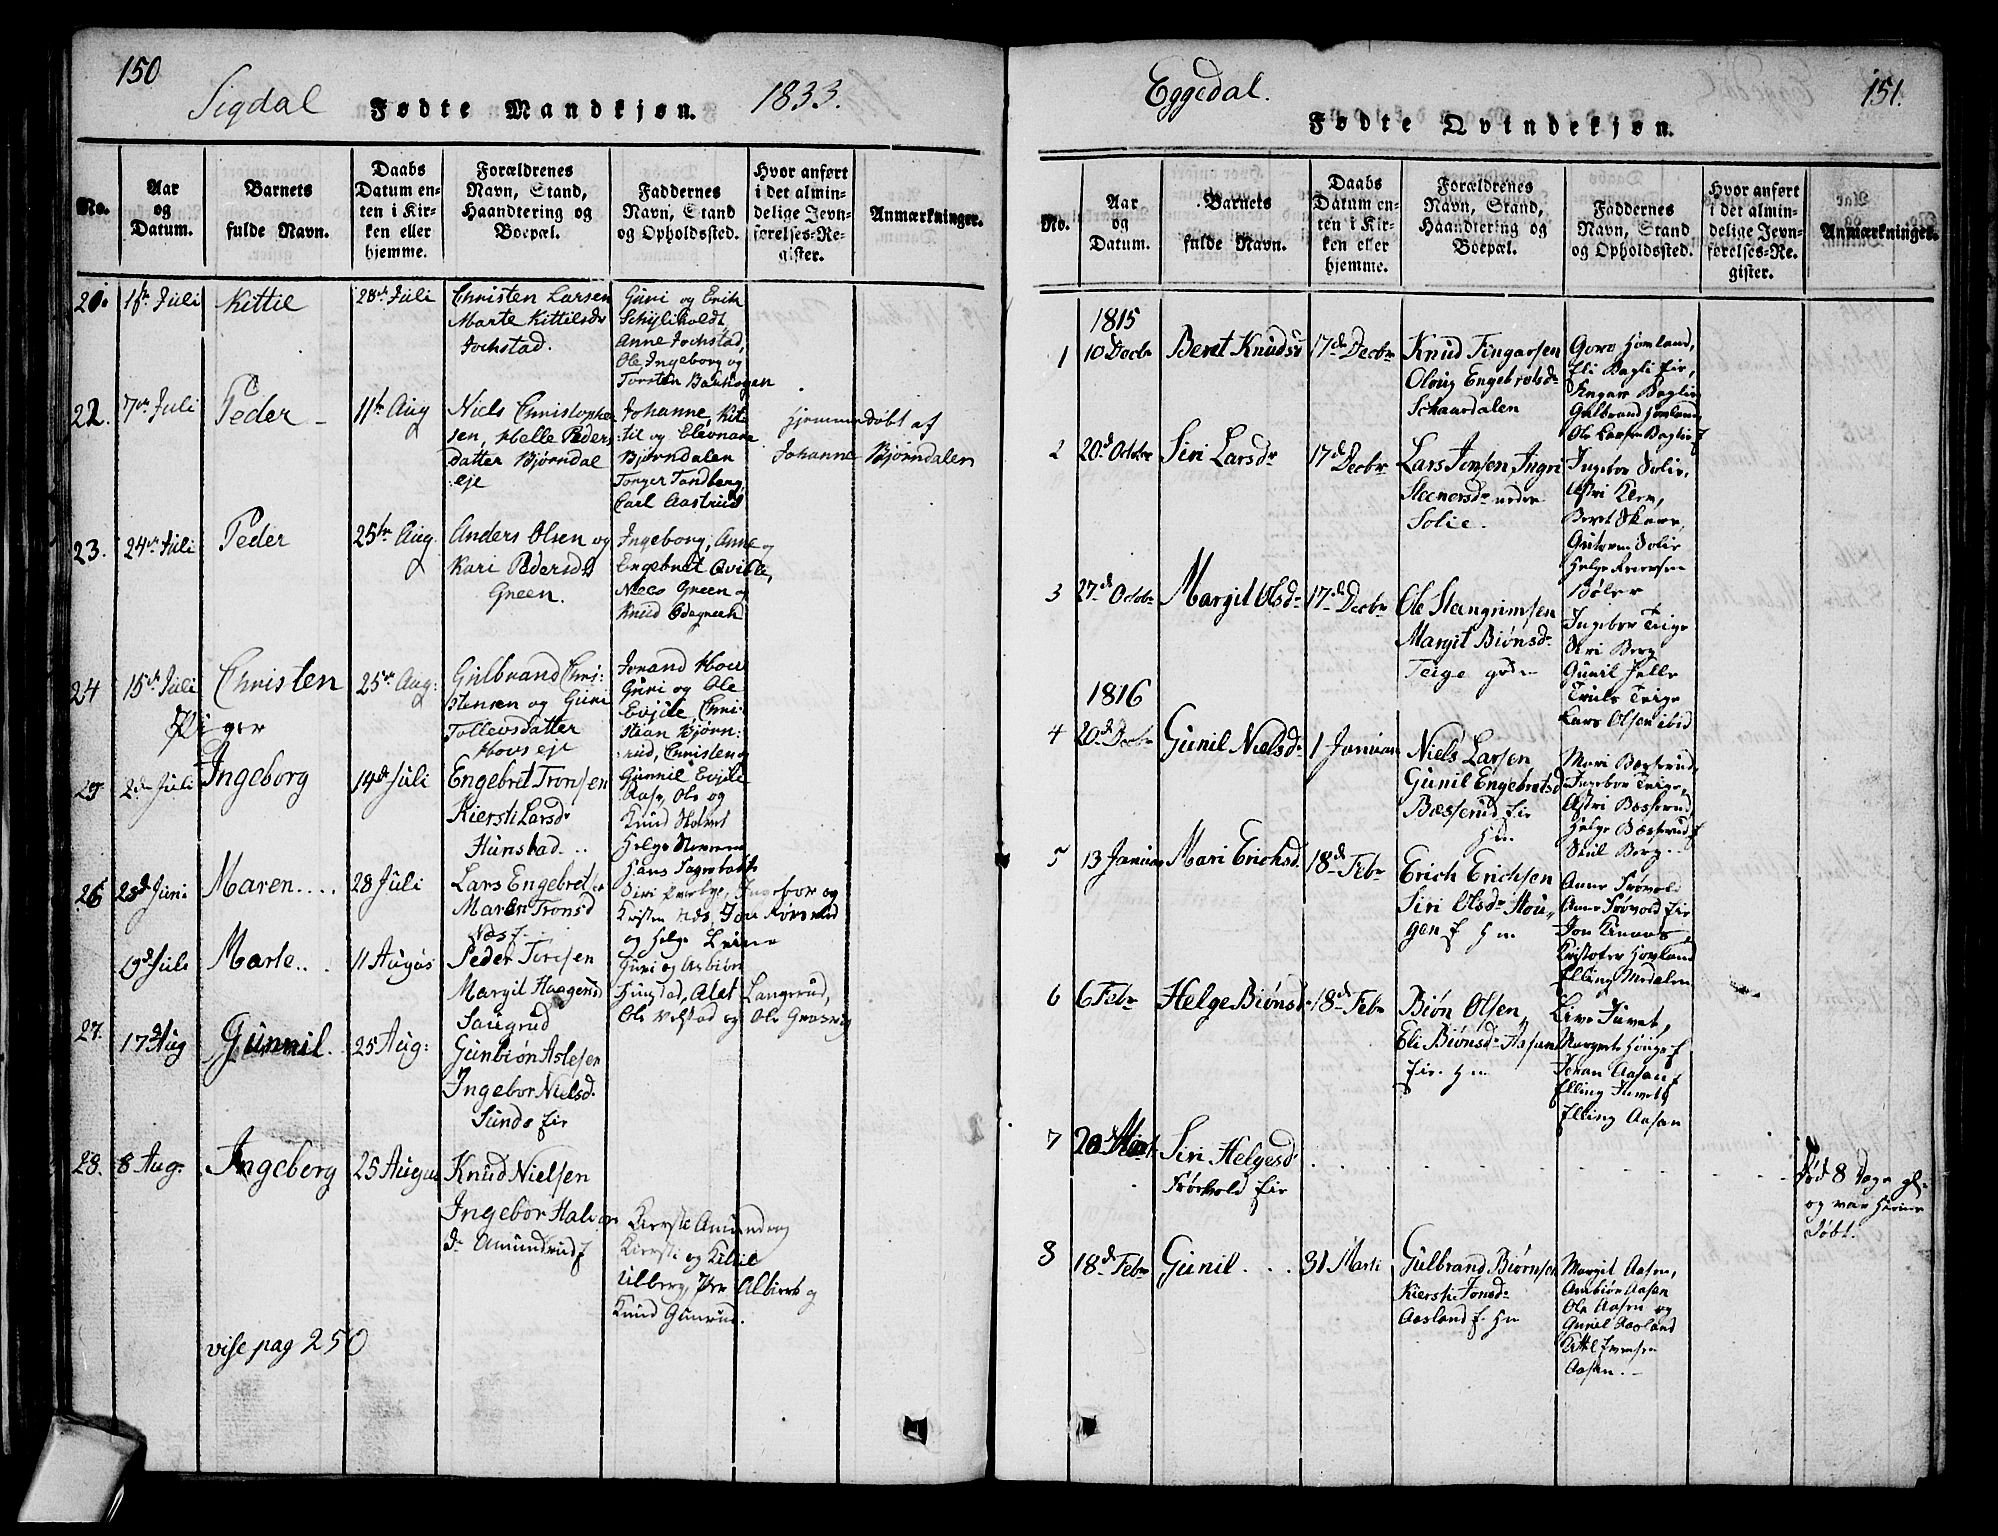 150
Sigdal Fødte Mandkjøn. 1833.
No.
Aar
og
Datum.
Barnets
fulde Navn.
Daabs
Datum en-
ten i Kir-
ken eller
hjemme.
Forældrenes
Navn, Stand,
Haandtering og
Boepæl.
Faddernes
Navn, Stand
og Opholdssted.
Hvor anført
i det almin-
delige Jevn-
førelses-Re-
gister.
Anmærkninger.
21. Juli
Kittil
28de Juli
Christen Larsen
Marte Kittilsdr
Jochstad.
Guri og Erik
Anne Jochstad,
Ole, Ingeborg og
Torsten
22. 7de Juli
Peder
11te Aug
Niels Christopher
sen, Helle Peders
datter Bjørndal
eje
Johanne, Kit-
til og Eleonare
Bjørndalen
Torger Tandberg,
Carl Aastrud
Hjemmedøbt af
Johanne Bjørndalen
23. 24de Juli
Peder
25te Aug.
Anders Olsen og
Kari Pedersdr
Green.
Ingeborg, Anne og
Engebret
Niels Green og
Knud
24 15de Juli
Christen
25de Aug:
Gulbrand Chri-
stensen og Guri
Tollevsdatter
Hovs eje
Jorand Hov
Guri og Ole
Evjile, Chri-
stian Bjørn-
rud, Christen og
Gunnil Evjile
Piger
25 2de Juli
Ingeborg
14de Juli
Engebret Tronsen
Kiersti Larsdr
Hunstad...
Aase, Ole og
Knud
Helge
26 28de Juni
Maren....
28 Juli
Lars Engebretsen
Maren Tronsd
Næs f.
Hans
Siri Ingebor og
Kristen Næs, Jon
og Helge
9de Juli
Marte..
11 Augus
Peder Torsen
Margit Haagensd
Saugrud
Guri og Asbiør
Hunstad, Alet Langerud,
Ole Velstad og Ole
27. 17de Aug
Gunnil.
25 Aug:
Gunbiøn Aslesen
Ingebor Nielsd.
Sunds eir
28. 8 Aug:
Ingeborg
25 Augus
Knud Nielsen
Ingebor Halvor
dr Amundrud f
Kierste Amundrog
Kiersti og Kittil
Ulberg, Per Albiert og
Knud Gunrud.
vise pag 250
151.
Eggedal.
Fødte Qvindekjøn.
No.
Aar
og
Datum.
Barnets
fulde Navn.
Daabs
Datum en-
ten i Kir-
ken eller
hjemme.
Forældrenes
Navn, Stand,
Haandtering og
Boepæl.
Faddernes
Navn, Stand
og Opholdssted.
Hvor anført
i det almin-
delige Jevn-
førelses-Re-
gister.
Anmærkninger.
1815
1 10 Decbr
Beret Knudsd
17de Decbr
Knud Fingarsen
Oloug Engebretsdr
Schaardalen
Goro Hovland,
Eli Bagli eir,
Fingar Baglie
Gulbrand Hovland
Ole Larsen Baglie f
2 20de Octobr
Siri Larsdr
17de Decbr
Lars Jonsen, Ingri
Steenersdr nedre
Solie.
Ingebor Solie,
Astri
Beret Skare,
Guttorm Solie
Helge
Bøler
3 27de Octobr
Margit Olsdr
17de Decbr
Ole Stengrimsen
Margit Biønsdr
Teige
Ingebor Teige
Siri Berg
Gunil
Truls Teige
Lars Olsen ibid
1816
4 20de Decbr
Gunil Nielsdr
1 Januar
Niels Larsen
Gunil Engebretsd
Bæsserud eir
Hm
Mari Bæsserud,
Ingebor Teige,
Astri Bæsserud
Helge Bæsserud f
Skul Berg..
5 13 Januar
Mari Erichsd.
18de Febr
Erich Erichsen
Siri Olsdr Hou-
gen f Hm
Anne Frøvold
Anne Frøvold eir
Jon
Kristofer Hovland
Elling Medalen
6 6 Febr
Helge Biønsd
18de Febr
Biøn Olsen,
Eli Biønsdr Aasan
eir. Hm
Live Juvet,
Margrete Houge f
Joran Aasan f
Elling Juvet f
Elling Aasan
7 20de Mart.
Siri Helgesdr
Frøvold eir
Død 8 Dage gl.
og var Hiemme
døbt.
8 18de Febr
Gunil....
31 Marti
Gulbrand Biørnsen
Kiersti Jonsdr
Aasland f Hm
Margit Aasen,
Anbiør Aasen
Ole Aasen og
Gunil Aasland
Kittil Evensen
Aasan.-